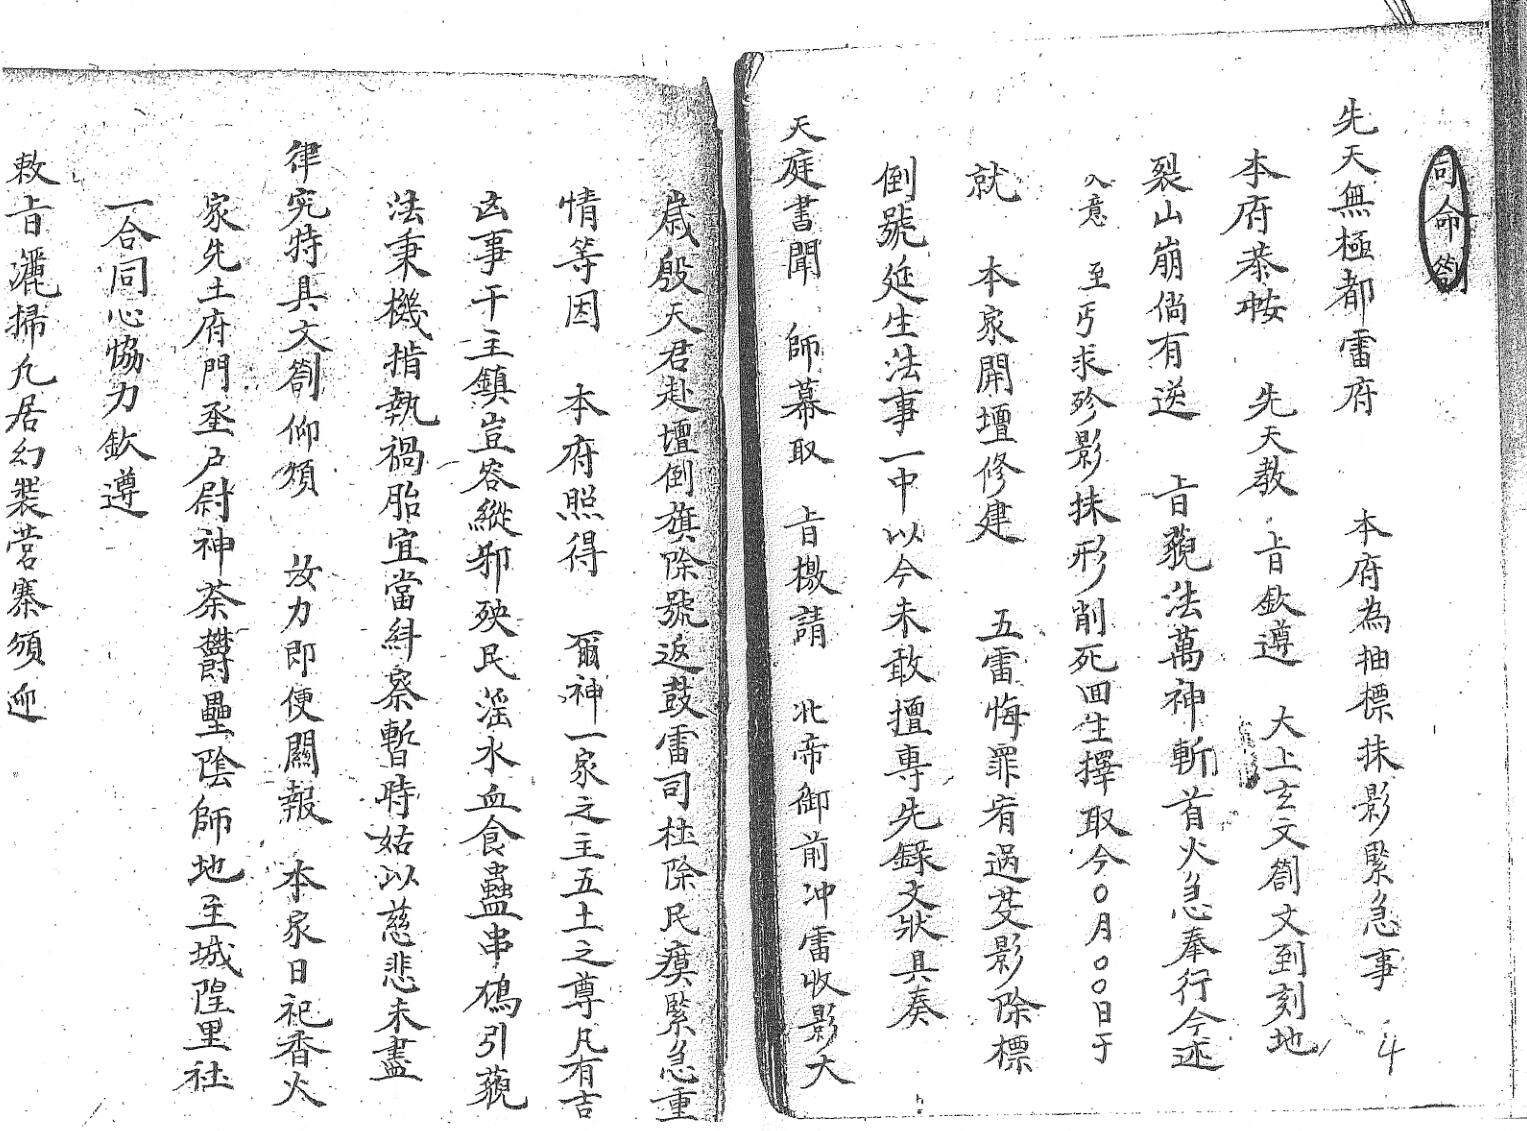 司命劄
先天無極都雷府 本府為抽標抹影緊急事 4
本府恭按 先天教 上旨欽遵 大上玄文劄文到刻地
裂山崩倘有逆 旨藐法萬神斬首火急奉行今述
入意 至丐求殄影抹形削死回生擇取今○月○○日于
就 本家開壇修建 五雷悔罪宥過芟影除標
倒號延生法事一中以今未敢擅專先錄文狀具奏
天庭書聞 師幕取 旨檄請 北帝御前沖雷收影大
歲殷天君赴壇倒旗除號返鼓雷司杜除民瘼緊急重
情等因 本府照得 爾神一家之主五土之尊凡有吉
凶事干主鎮豈容縱邪殃民淫水血食蠱串鴆引藐
法秉機指執禍胎宜當糾察暫時姑以慈悲未盡
律究特具文劄仰煩 汝力即便關報 本家日祀香火
家先土府門丞戶尉神荼欝壘陰師地主城隍里社
一合同心協力欽遵
敕旨灑掃九居幻裝營寨須迎